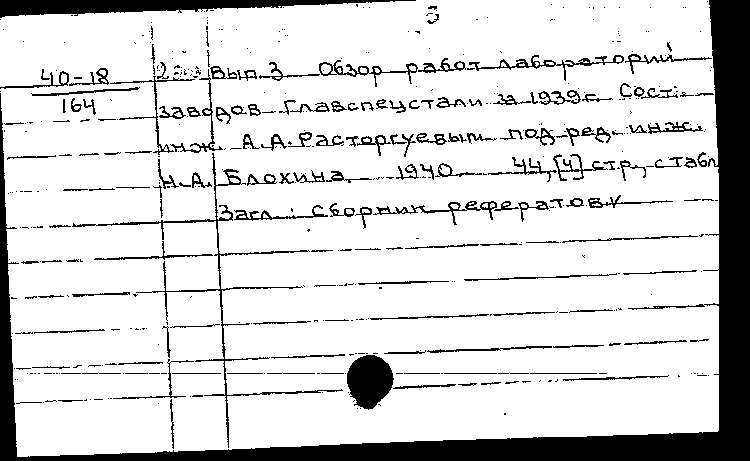 3
40-18
164
Вып. 3 Обзор работ лабораторий
заводов Главспецстали за 1939 г. Сост.:
инж. А.А. Расторгуевым под ред. инж.
Н.А. Блохина. 1940 44, [4] стр., с табл
Загл.: Сборник рефератов.